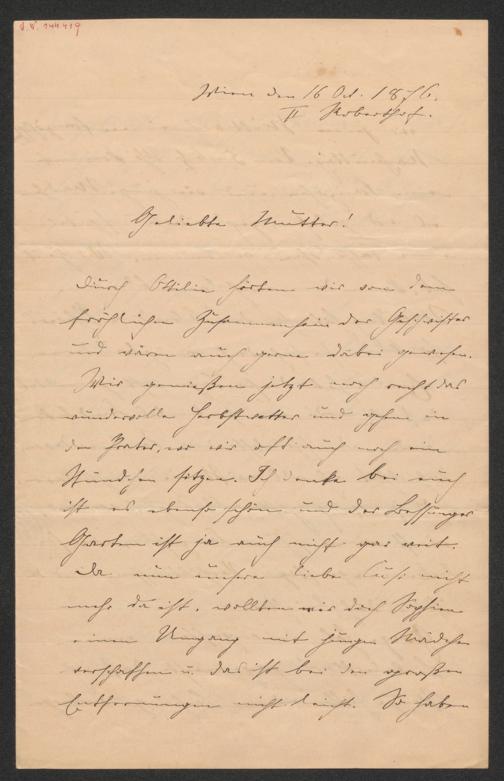 J.N. 144.419
Wien den 16 Oct. 1876.
II Robertshof.
Geliebte Mutter!
Durch Ottilie hörten wir von dem
fröhlichen Zusammensein der Geschwister
und wären auch gerne dabei gewesen.
Wir genießen jetzt noch recht das
wundervolle Herbstwetter und gehen in
den Prater, wo wir oft auch noch ein
Stündchen sitzen. Ich denke bei euch
ist es ebenso schön und der Bessunger
Garten ist ja auch nicht gar weit.
Da nun unsere liebe Susi nicht
mehr da ist, wollten wir doch Sophien
einen Umgang mit jungen Mädchen
verschaffen u. das ist bei den großen
Entfernungen nicht leicht. So haben